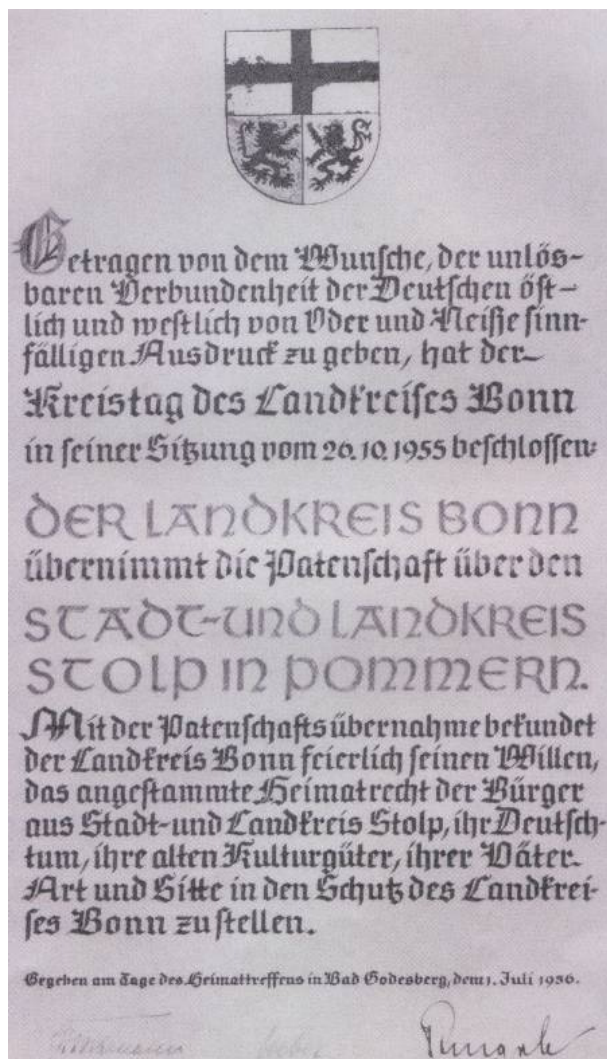 Getragen von dem Wunsche, der unlös-
baren Verbundenheit der Deutschen öst-
lich und westlich von Oder und Neiße sinn-
fälligen Ausdruck zu geben, hat der
Kreistag des Landkreises Bonn
in seiner Sitzung vom 20.10.1955 beschlossen:
DER LANDKREIS BONN
übernimmt die Patenschaft über den
STADT-UND LANDKREIS
STOLP IN POMMERN.
Mit der Patenschaftsübernahme bekundet
der Landkreis Bonn feierlich seinen Willen,
das angestammte Heimatrecht der Bürger
aus Stadt-und Landkreis Stolp, ihr Deutsch-
tum, ihre alten Kulturgüter, ihrer Väter
Art und Sitte in den Schutz des Landkrei-
ses Bonn zu stellen.
Gegeben am Tage des Heimattreffens in Bad Godesberg, dem 1. Juli 1956.